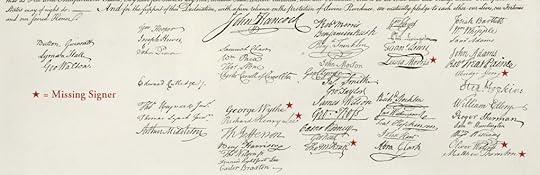 States may of right do. And for the support of this Declaration, with a firm reliance on the Protection of divine Providence, we mutually pledge to each other our Lives, our Fortunes
and our sacred Honor.
John Hancock
Button Gwinnett
Lyman Hall
Geo Walton.
★ = Missing Signer
Wm Hooper
Joseph Hewes,
John Penn
Edward Rutledge
Thos Heyward Junr.
Thomas Lynch Junr.
Arthur Middleton
Samuel Chase
Wm Paca
Thos Stone
Charles Carroll of Carrollton
George Wythe
Richard Henry Lee
Th Jefferson
Benja Harrison
Thos Nelson jr.
Francis Lightfoot Lee
Carter Braxton
Robt Morris
Benjamin Rush
Benj. Franklin
John Morton
Geo Clymer
Jas. Smith
Geo. Taylor
James Wilson
Geo. Ross
Caesar Rodney
Geo Read
Tho M:Kean
Wm Floyd
Phil. Livingston
Frans. Lewis
Lewis Morris
Richd. Stockton
Jno Witherspoon
Fras. Hopkinson
John Hart
Abra Clark
Josiah Bartlett
Wm Whipple
Saml Adams
John Adams
Robt Treat Paine
Elbridge Gerry
Step. Hopkins
William Ellery
Roger Sherman
Saml Huntington
Wm Williams
Oliver Wolcott
Matthew Thornton